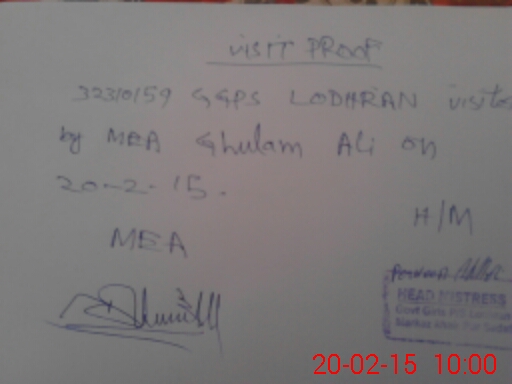 VISIT PROOF
32310159 GGPS LODHRAN visited
by MEA Ghulam Ali on
20-2-15.
H/M
MEA
HEAD MISTRESS
Govt Girls
20-02-15 10:00